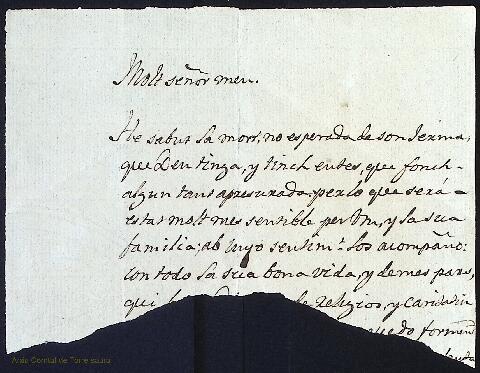 Molt señor meu.
He sabut la mort, no esperada de son Jermà,
que Deu tinga, y tinch entes, que fonch
algun tant apresurada; per lo que serà
estat molt mes sentible per Vm, y la sua
familia; ab cuyo sentimt. los acompañô:
con todo la sua bona vida, y demes pars,
qui Religios, y Caridadiu
quedo forment
Arxiu Comtal de Torre saura